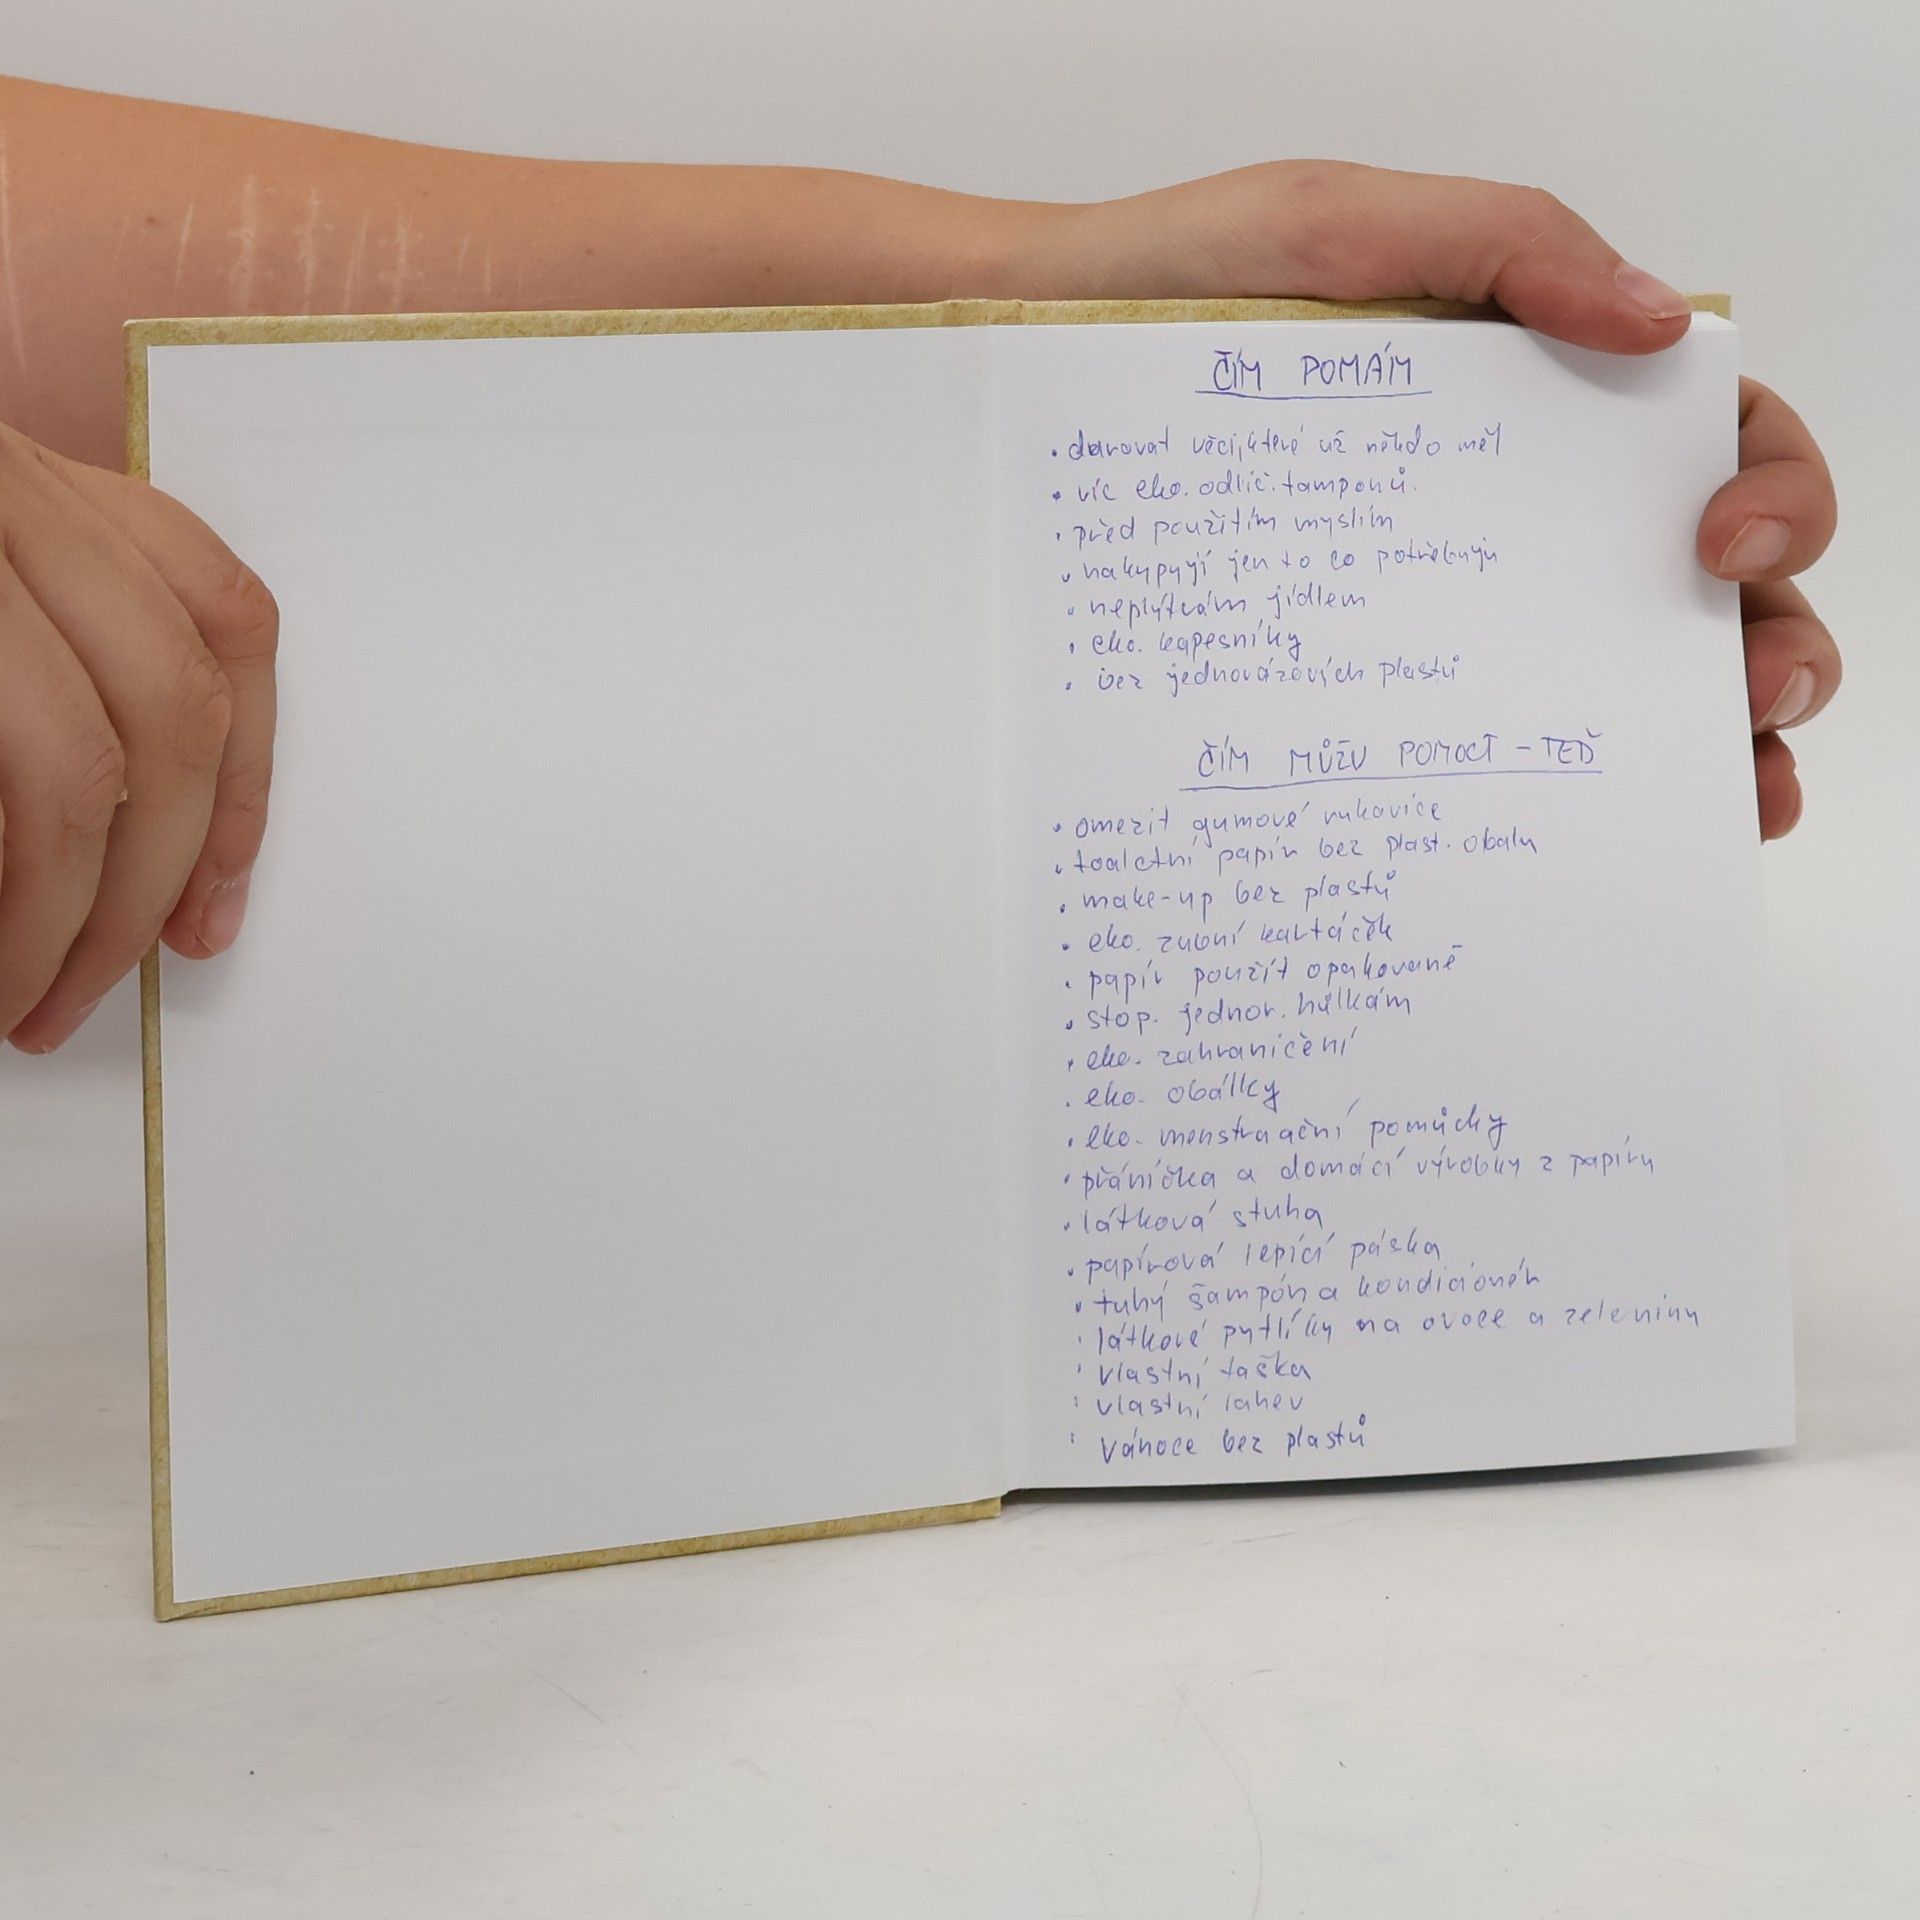 ČÍM POMÁM
• darovat věci, které už někdo měl
• víc eko. odlič. tamponů.
• před použitím myslím
• nakupyjí jen to co potřebuju
• neplýtvám jídlem
• eko. kapesníky
• bez jednorázových plastů
ČÍM MŮŽU POMOCT - TEĎ
• omezit gumové rukavice
• toaletní papír bez plast. obalu
• make-up bez plastů
• eko. zubní kartáček
• papír použít opakovaně
• stop. jednor. hůlkám
• eko. zahraničení
• eko. obálky
• eko. menstruační pomůcky
• přáníčka a domácí výrobky z papíru
• látková stuha
• papírová lepící páska
• tuhý šampón a kondicionér
• látkové pytlíky na ovoce a zeleninu
• vlastní taška
• vlastní lahev
• Vánoce bez plastů